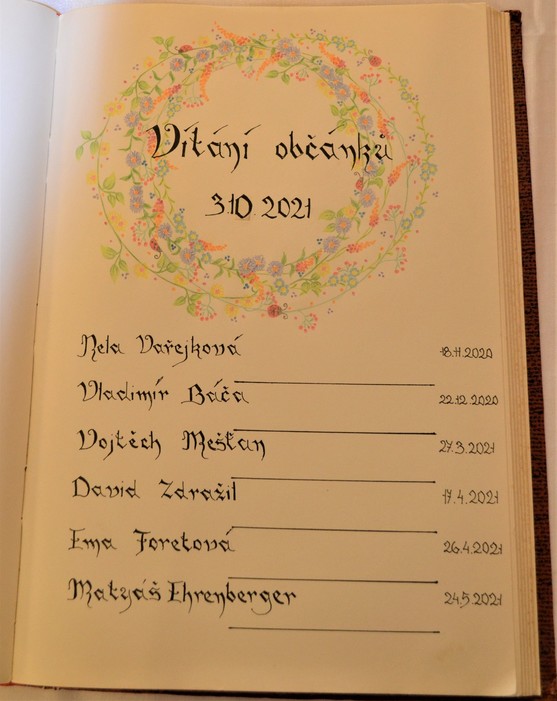 Vítání občánků
3.10.2021
Nela Vařejková 18.11.2020
Vladimír Báča 22.12.2020
Vojtěch Mešťan 27.3.2021
David Zdražil 17.4.2021
Ema Foretová 26.4.2021
Matyáš Ehrenberger 24.5.2021